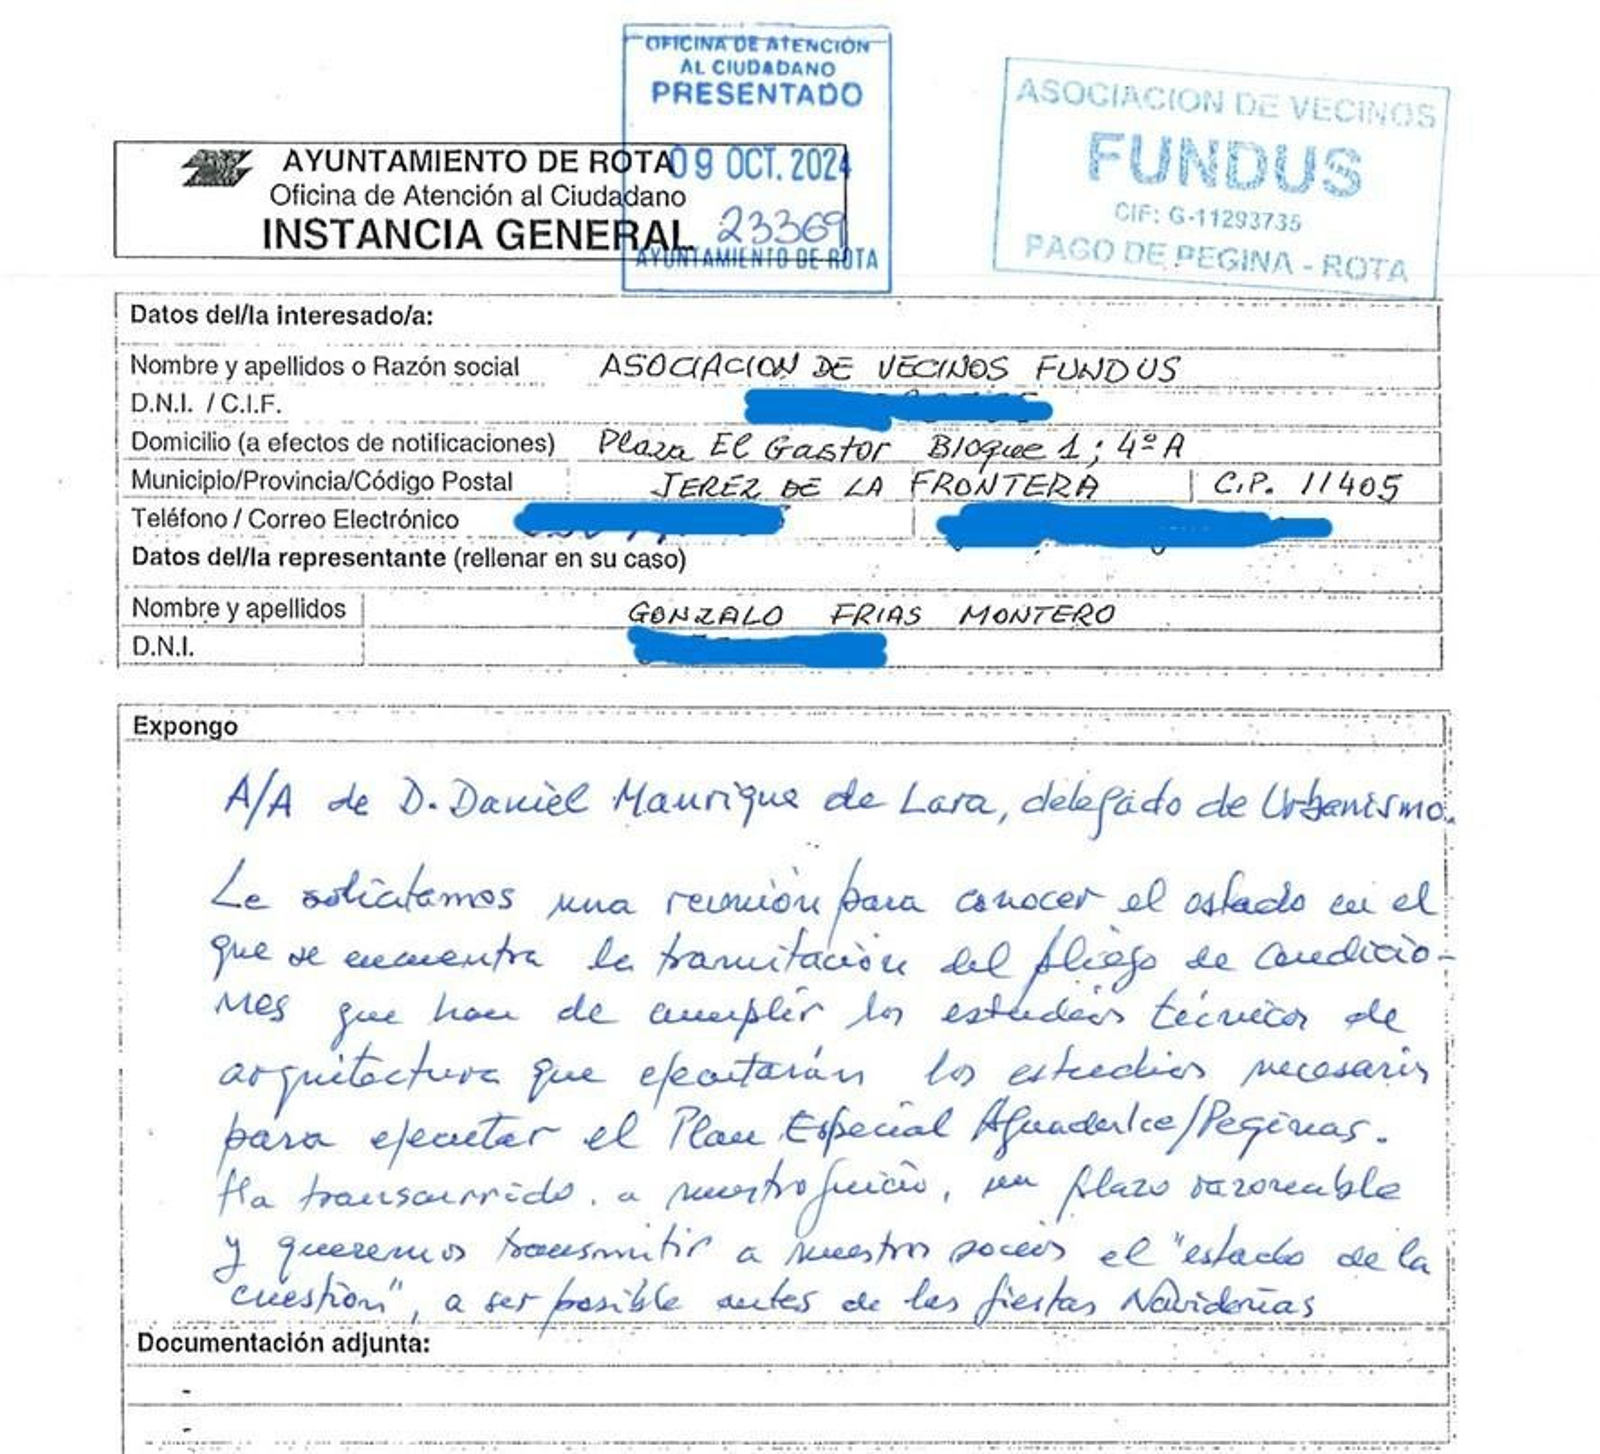 OFICINA DE ATENCIÓN
AL CIUDADANO
PRESENTADO
09 OCT. 2024
23369
AYUNTAMIENTO DE ROTA
ASOCIACION DE VECINOS
FUNDUS
CIF: G-11293735
PAGO DE PEGINA - ROTA
AYUNTAMIENTO DE ROTA
Oficina de Atención al Ciudadano
INSTANCIA GENERAL
Datos del/la interesado/a:
Nombre y apellidos o Razón social ASOCIACION DE VECINOS FUNDUS
D.N.I. / C.I.F.
Domicilio (a efectos de notificaciones) Plaza El Gastor Bloque 1; 4º A
Municipio/Provincia/Código Postal JEREZ DE LA FRONTERA C.P. 11405
Teléfono / Correo Electrónico
Datos del/la representante (rellenar en su caso)
Nombre y apellidos GONZALO FRIAS MONTERO
D.N.I.
Expongo
A/A de D. Daniel Manrique de Lara, delegado de Urbanismo.
Le solicitamos una reunión para conocer el estado en el
que se encuentra la tramitación del pliego de condicio-
nes que han de cumplir los estudios técnicos de
arquitectura que ejecutarán los estudios necesarios
para ejecutar el Plan Especial Aguadulce/Peginas.
Ha transcurrido, a nuestro juicio, un plazo razonable
y queremos transmitir a nuestros socios el "estado de la
cuestión", a ser posible antes de las fiestas Navideñas
Documentación adjunta:
-
-